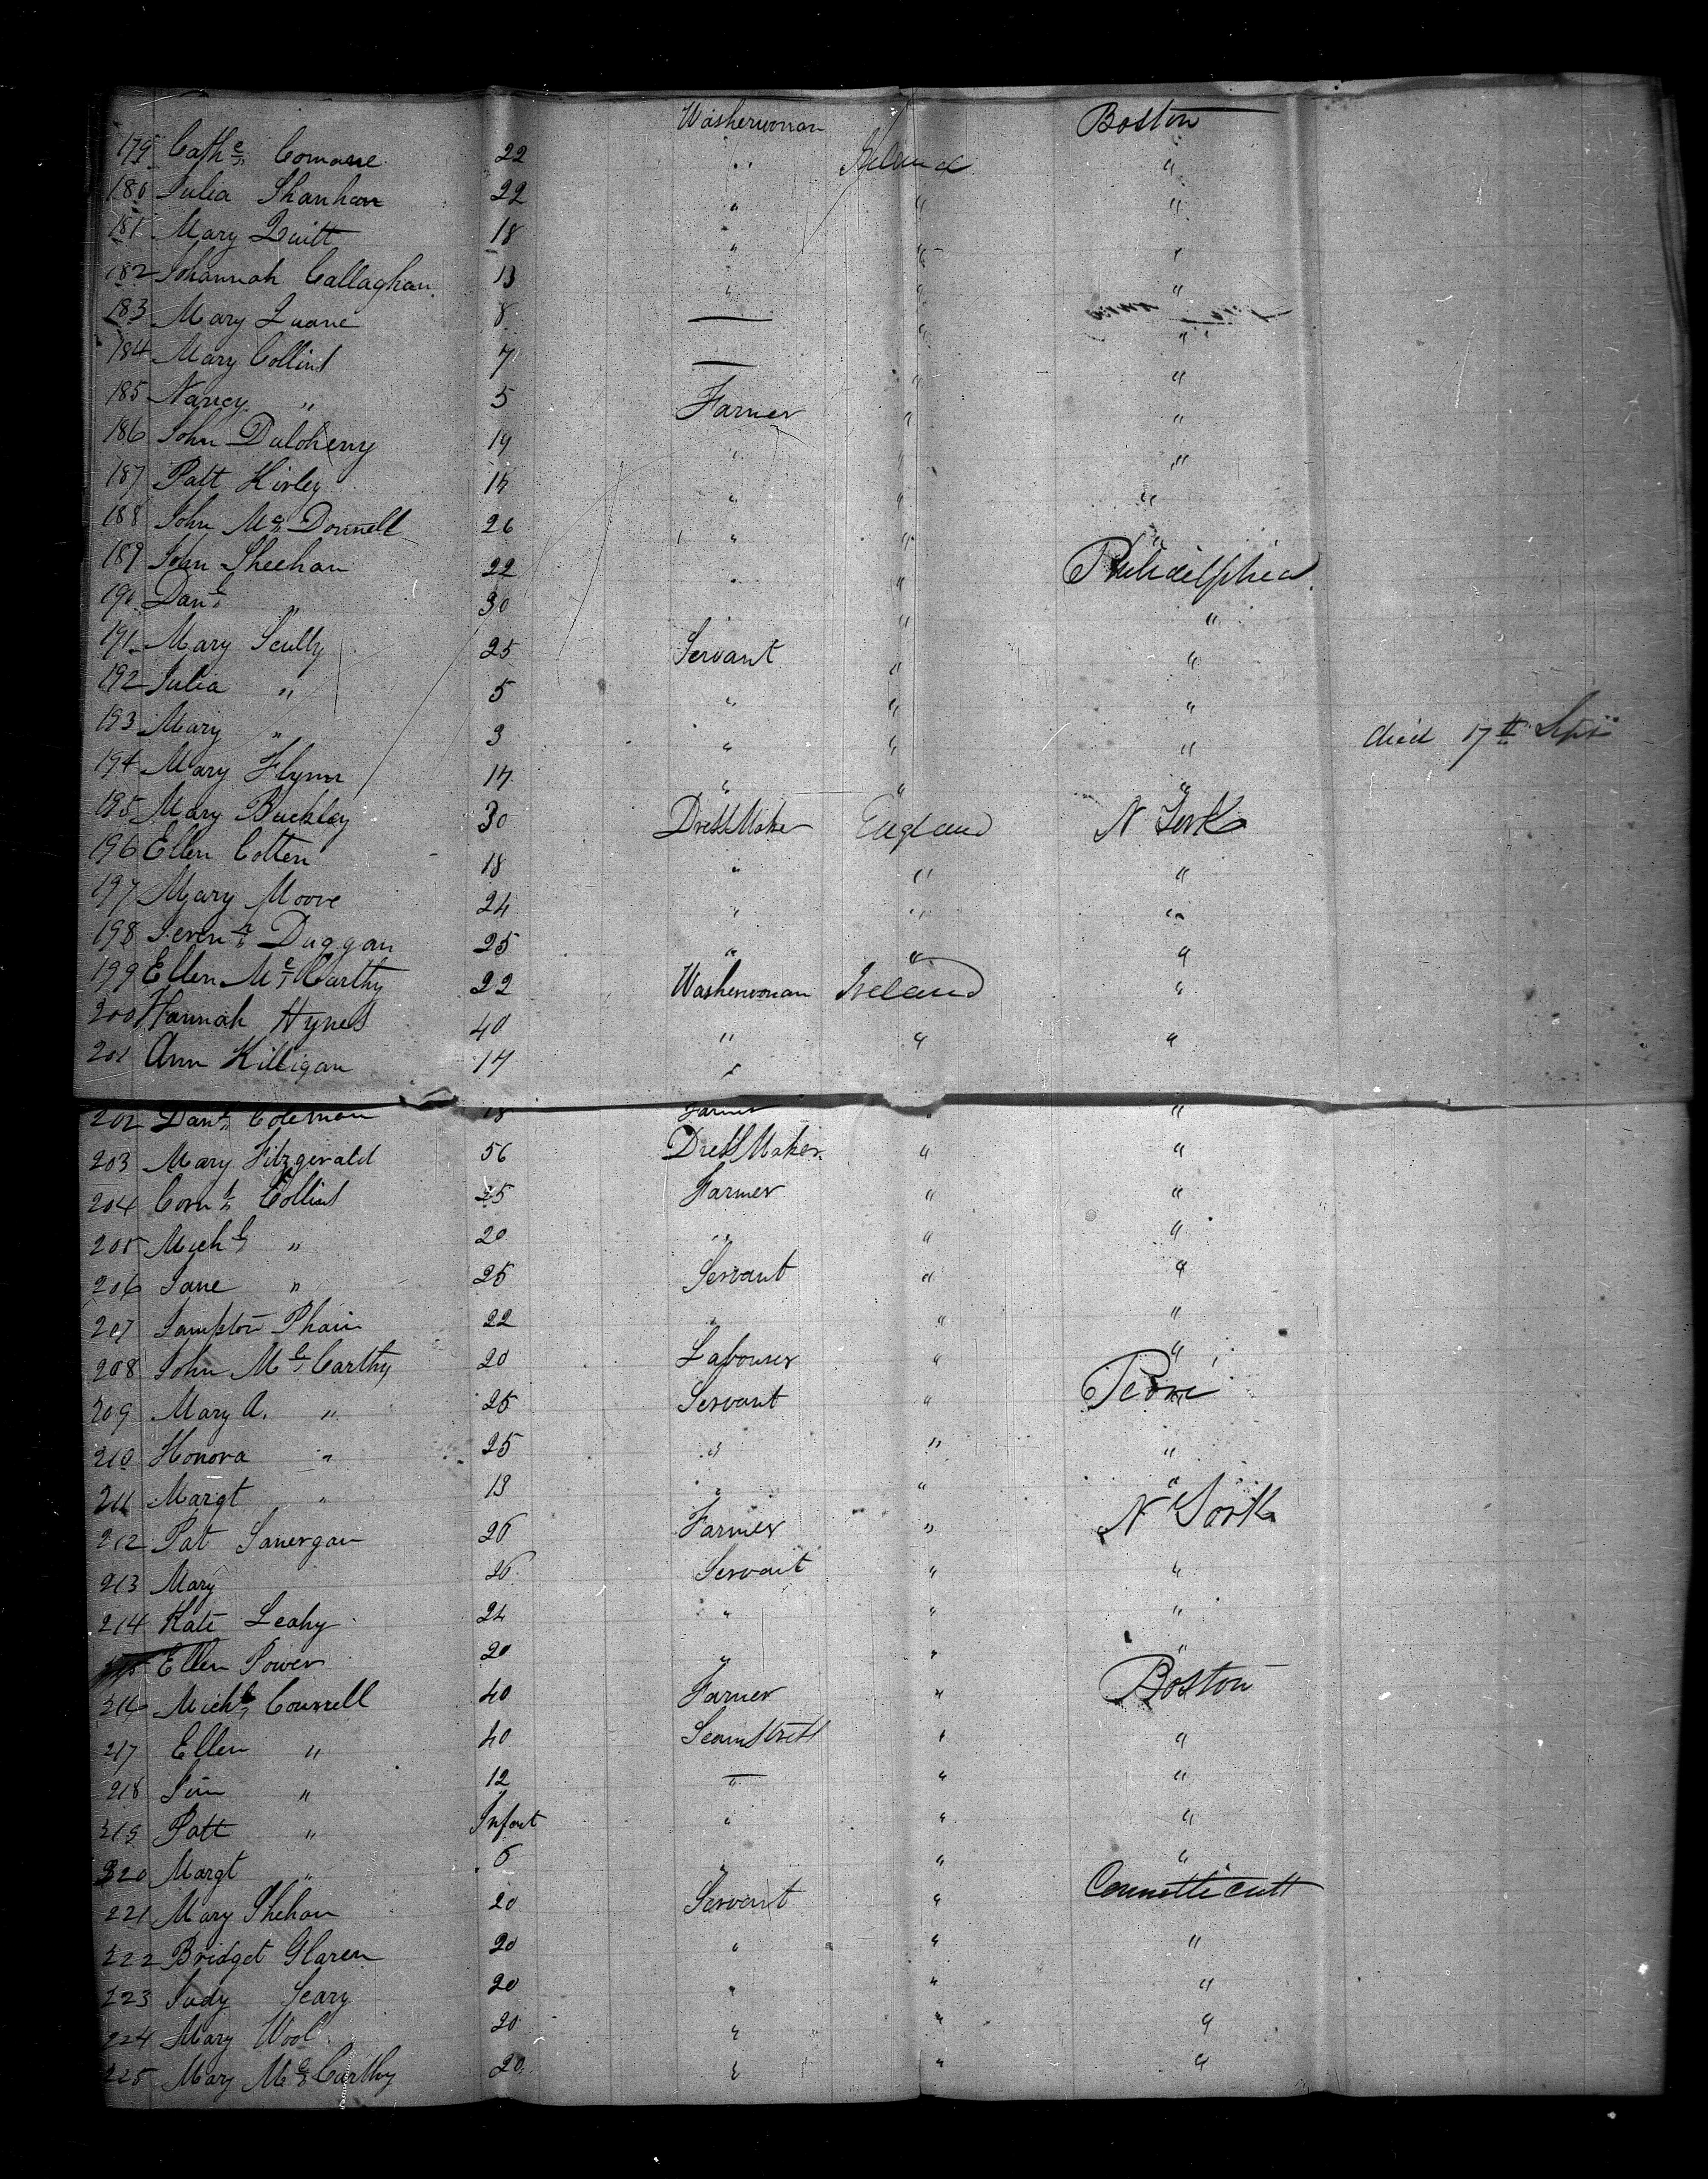 Washerwoman Boston
179 Cathe Comane 22 " Ireland "
180 Julia Shanhan 22 " " "
181 Mary Quilt 18 " " "
182 Johannah Callaghan 13 " " "
183 Mary Luane 8 — " "
184 Mary Collins 7 — " "
185 Nancy " 5 Farmer " "
186 John Duloherry 19 " " "
187 Patt Hirley 17 " " "
188 John Mc Donnell 26 " " "
189 John Sheehan 22 " " Philidelphia
190 Danl " 30 " "
191 Mary Scully 25 Servant " "
192 Julia " 5 " " "
193 Mary " 3 " " " died 17th Sept
194 Mary Flynn 17 " " "
195 Mary Buckley 30 DressMaker England N York
196 Ellen Cotten 18 " " "
197 Mary Moore 24 " " "
198 Duggan 25 " " "
199 Ellen Mc Carthy 22 Washerwoman Ireland "
200 Hannah Hynes 40 " " "
201 Ann Killigan 17 "
202 Danl Coleman 18 Farmer " "
203 Mary Fitzgerald 56 DressMaker " "
204 Corns Collins 25 Farmer " "
205 Michl " 20 " " "
206 Jane " 25 Servant " "
207 Sampton Phair 22 " " "
208 John Mc Carthy 20 Labourer " "
209 Mary A. " 25 Servant "
210 Honora " 25 " " "
211 Margt " 13 " " "
212 Pat Sanergan 26 Farmer " N York
213 Mary 26 Servant " "
214 Kate Leahy 24 " " "
215 Ellen Power 20 " " "
216 Michl Connell 40 Farmer " Boston
217 Ellen " 40 Seamstress " "
218 Jim " 12 — " "
219 Patt " Infant " " "
220 Margt " 6 " " "
221 Mary Shehan 20 Servant " Connetticutt
222 Bridget Glaren 20 " " "
223 Judy Geary 20 " " "
224 Mary Wool 20 " " "
225 Mary Mc Carthy 20 " " "